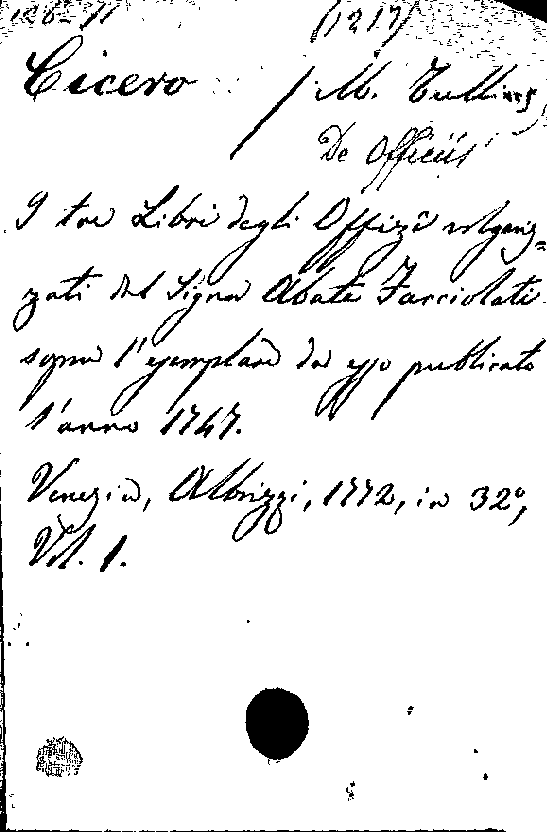 128-11 (1217)
Cicero / M. Tullius
De Officiis
I tre Libri degli Offizî volgariz=
zati dal Signor Abate Facciolati
sopra l'esemplare da esso publicato
l'anno 1747.
Venezia, Albrizzi, 1772, in 32°,
Vol. 1.